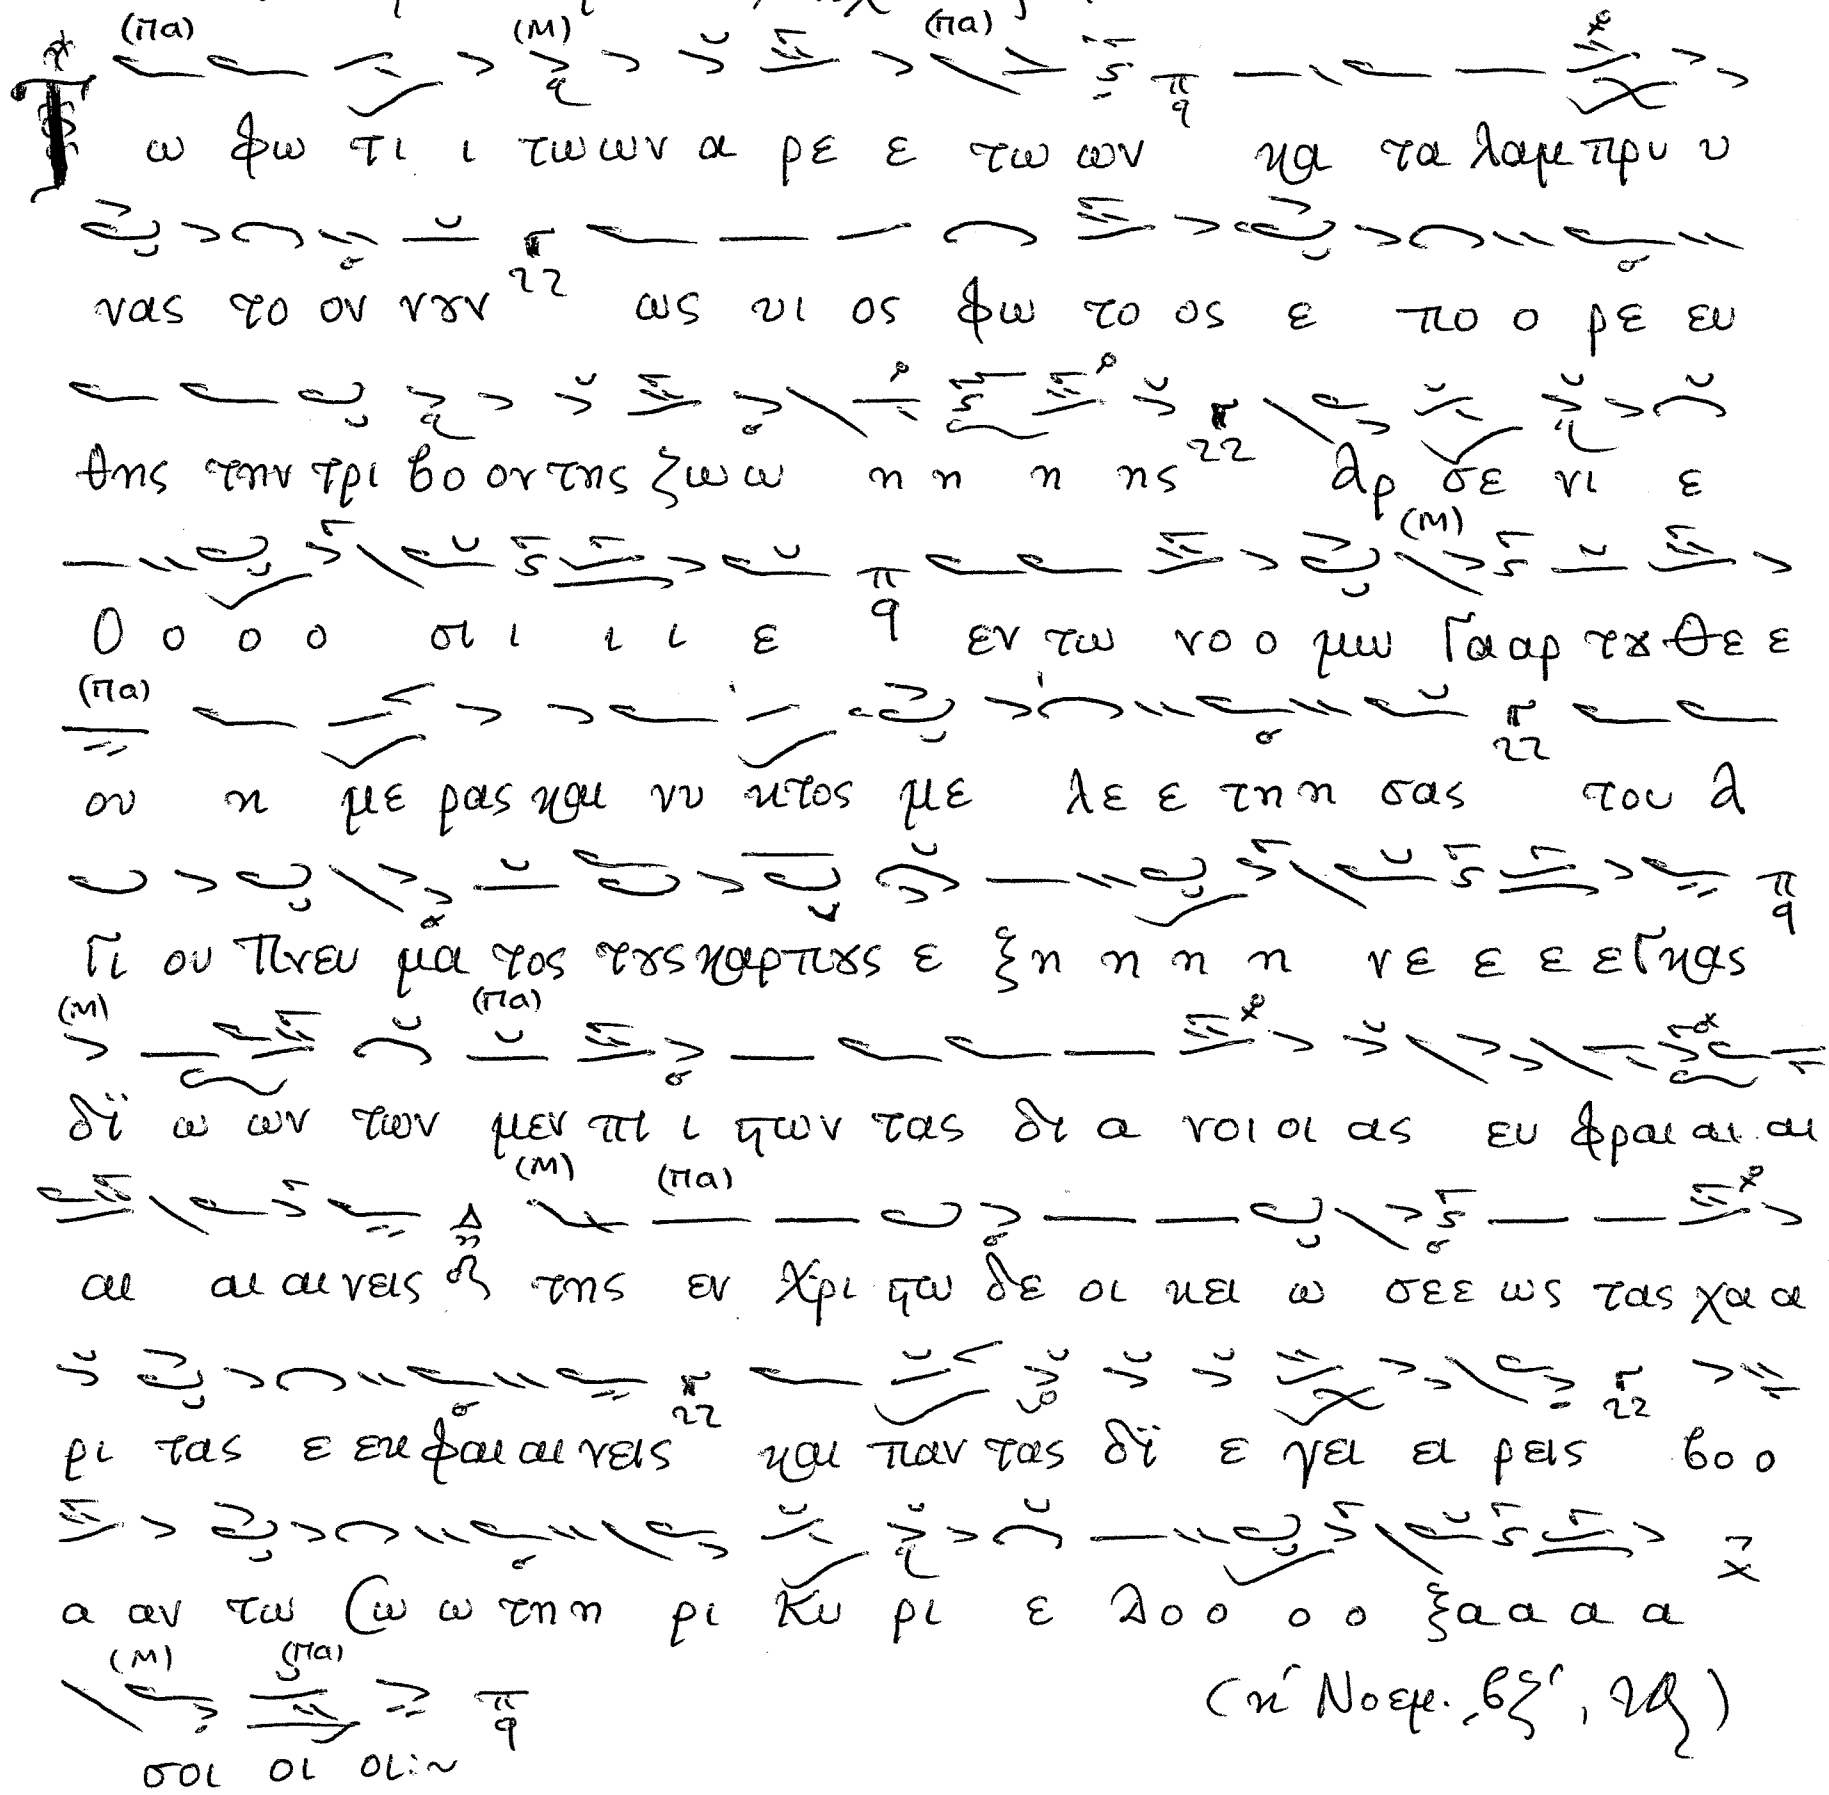 (Πα) (Μ) (Πα)
Τω φω τι ι τωωων α ρε ε τω ων κα τα λαμ πρυ υ
νας το ον νȣν ως υι ος φω το ος ε πο ο ρε ευ
θης την τρι βο ον της ζω ω η η η ης Αρ σε νι ε
(Μ)
Ο ο ο ο σι ι ι ι ε εν τω νο ο μω Γα αρ τȣ Θε ε
(Πα)
ου η με ρας και νυ κτος με λε ε τη η σας του Α
Γι ου Πνευ μα τος τȣς καρπȣς ε ξη η η η νε ε ε ειΓκας
(Μ) (Πα)
δϊ ω ων των μεν πι ι ϛων τας δι α νοι οι ας ευ φραι αι αι
(Μ) (Πα)
αι αι αι νεις της εν Χρι ϛω δε οι κει ω σε ε ως τας χα α
ρι τας ε εκ φαι αι νεις και παν τας δϊ ε γει ει ρεις βο ο
α αν τω Σω ω τη η ρι Κυ ρι ε Δο ο ο ο ξα α α α
(Μ) (Πα)
σοι οι οι:~
(κ΄ Νοεμ. ͵βζ΄,